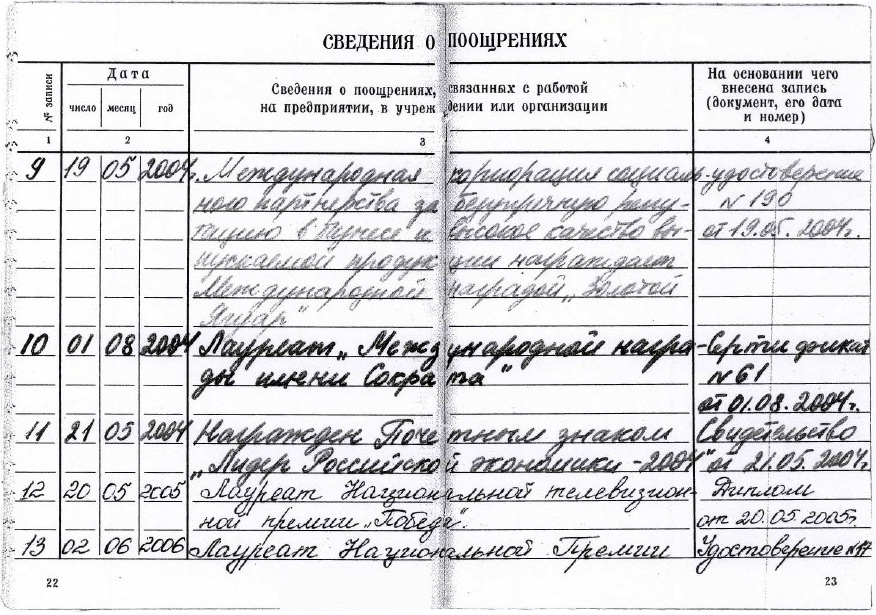 СВЕДЕНИЯ О ПООЩРЕНИЯХ
№ записи
Дата
число месяц год
Сведения о поощрениях, связанных с работой
на предприятии, в учреждении или организации
На основании чего
внесена запись
(документ, его дата
и номер)
1 2 3 4
9 19 05 2004г. Международная корпорация социаль- удостоверение
ного партнерства за безупречную репу- N 190
тацию в бизнесе и высокое качество вы- от 19.05.2004г.
пускаемой продукции награждает
Международной наградой „Золотой
Ягуар"
10 01 08 2004 Лауреат „Международной награ- Сертификат
ды имени Сократа" N 61
от 01.08.2004г.
11 21 05 2004 Награжден Почетным знаком Свидетельство
„Лидер Российской экономики -2004" от 21.05.2004г.
12 20 05 2005 Лауреат Национальной телевизион- Диплом
ной премии „Победа". от 20.05.2005г.
13 02 06 2006 Лауреат Национальной Премии Удостоверение N17
22 23